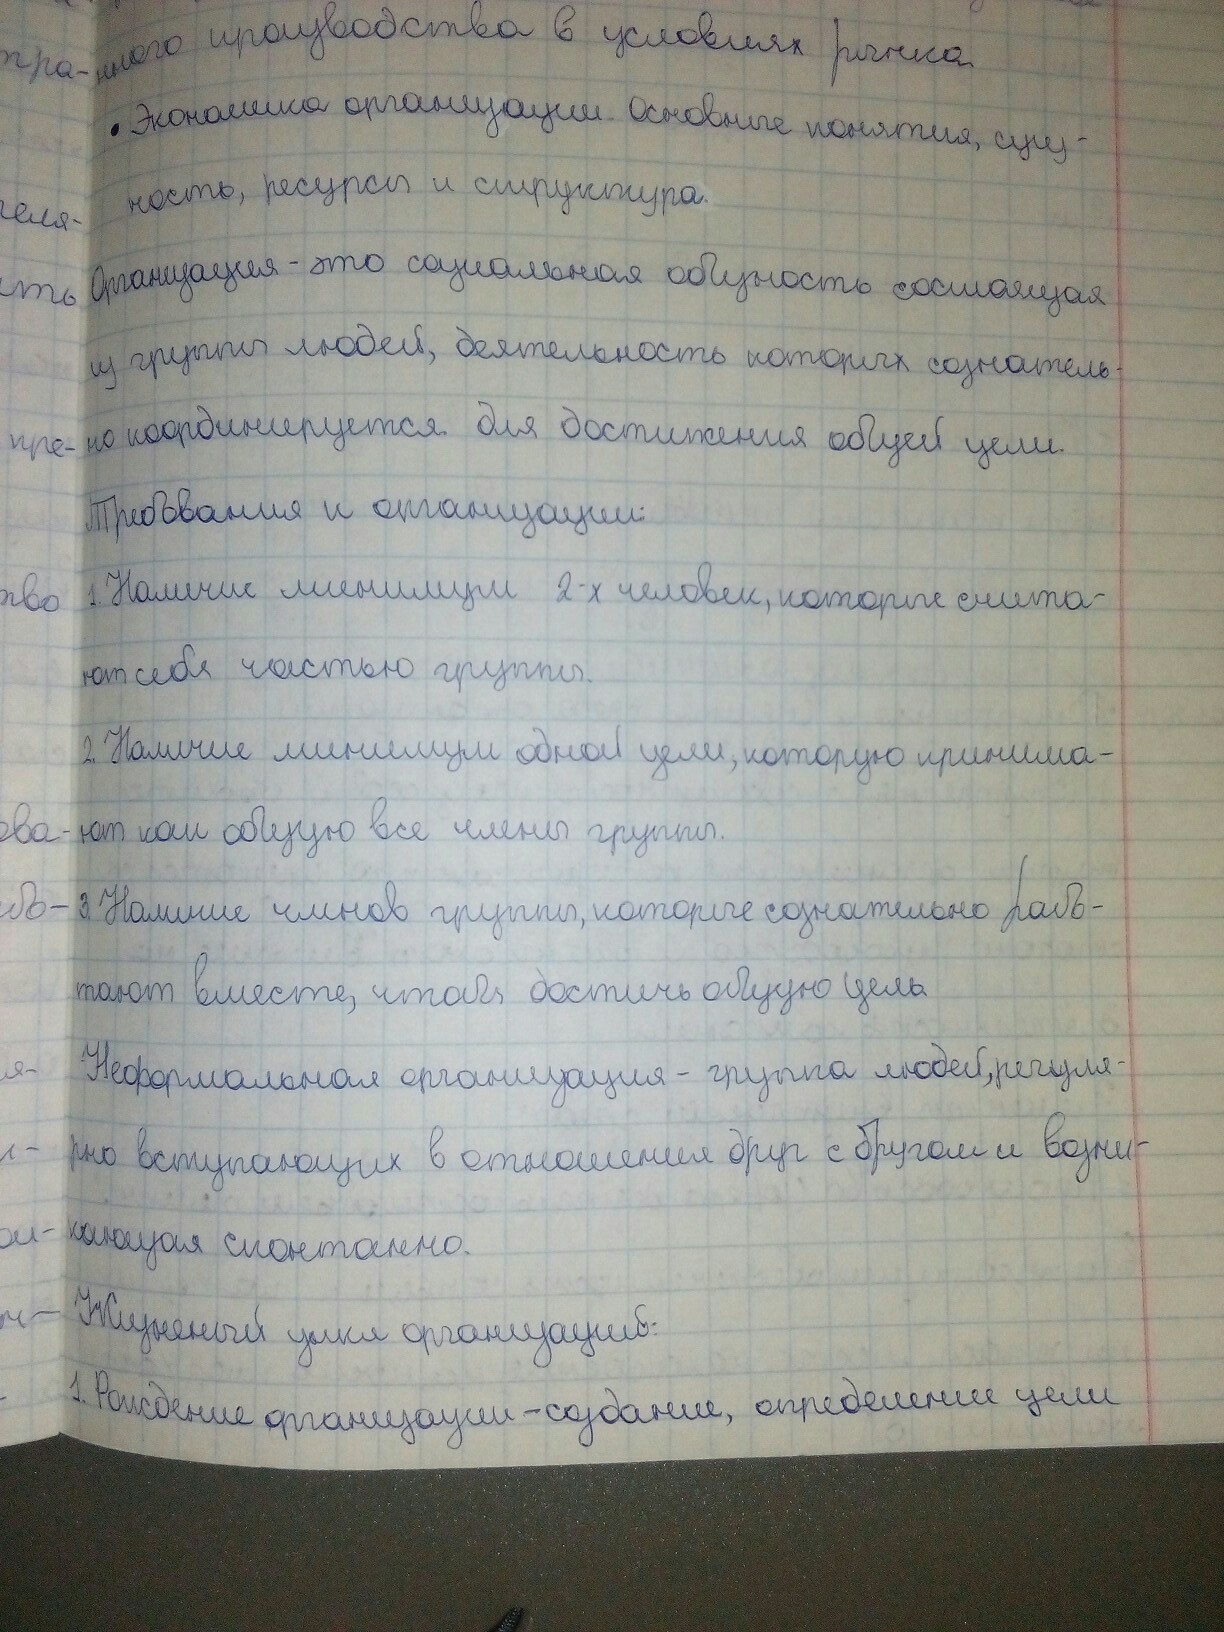 тра-
нного производства в условиях рынка
• Экономика организации. Основные понятия, сущ-
ность, ресурсы и структура.
теля-
Организация - это социальная общность состоящая
ить
из группы людей, деятельность которых сознатель-
пре-
но координируется для достижения общей цели.
Требования к организации:
1. Наличие минимум 2-х человек, которые счита-
тво
ют себя частью группы.
2. Наличие минимум одной цели, которую принима-
ова-
ют как общую все члены группы.
3 Наличие членов группы, которые сознательно рабо-
тают вместе, чтобы достичь общую цель
Неформальная организация - группа людей, регуля-
рно вступающих в отношения друг с другом и возни-
кающая спонтанно.
Жизненый цикл организаций:
1. Рождение организации - создание, определение цели